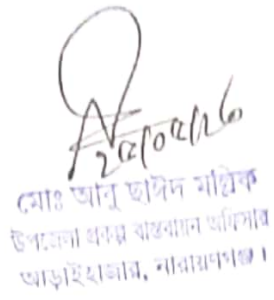 ২৫/০৫/২৬
মোঃ আবু ছাঈদ মল্লিক
উপজেলা প্রকল্প বাস্তবায়ন অফিসার
আড়াইহাজার, নারায়ণগঞ্জ।